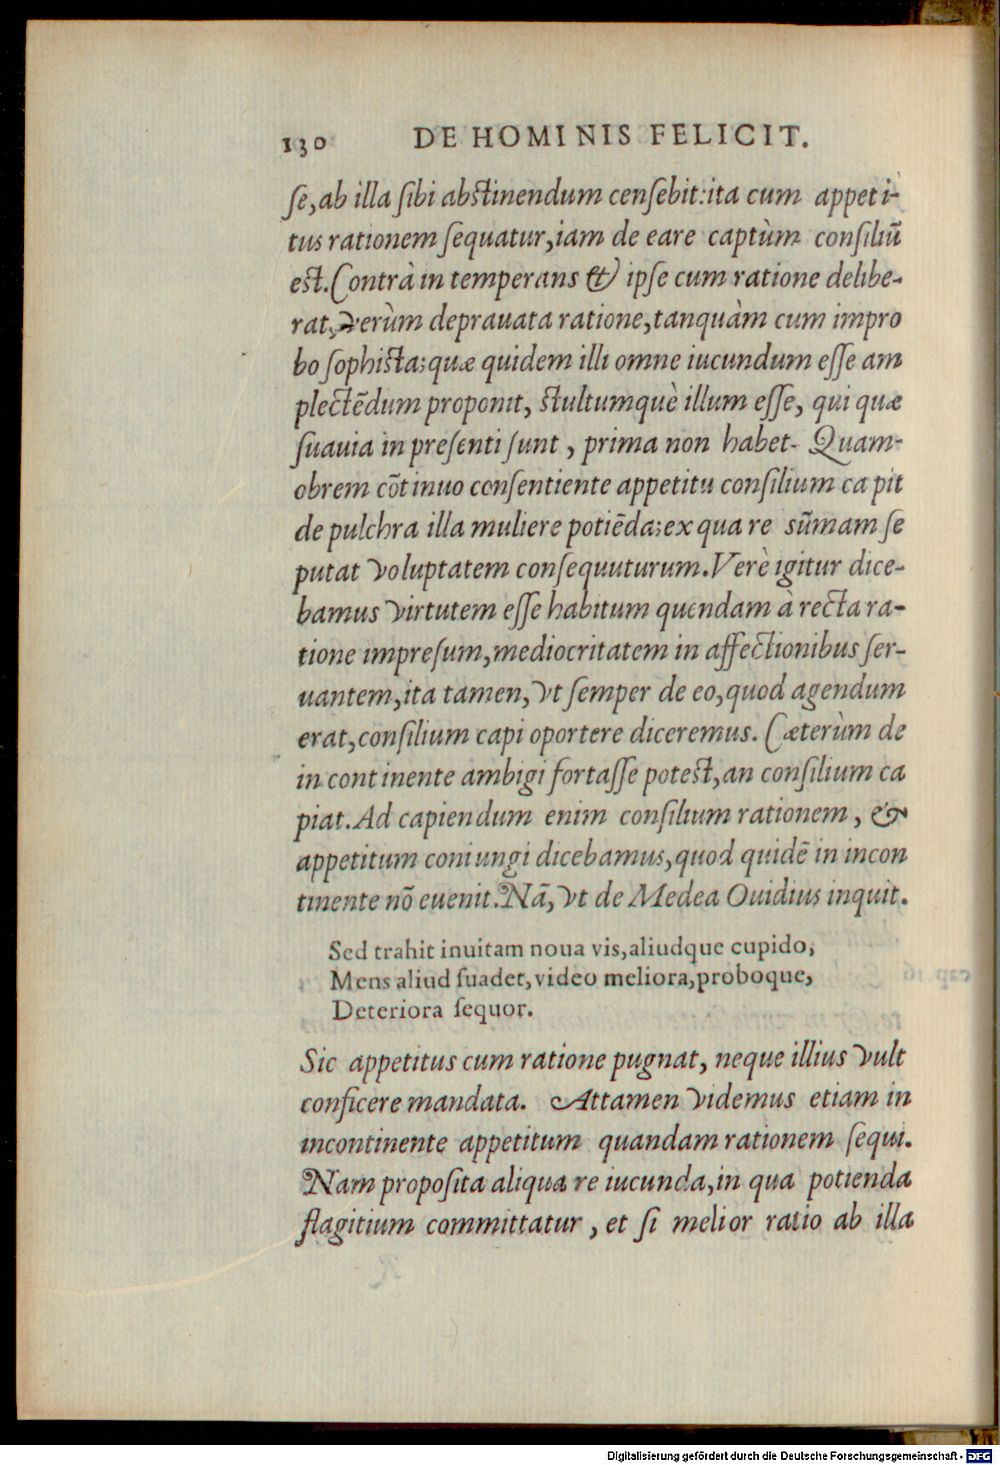 130 DE HOMINIS FELICIT.
ſe, ab illa ſibi abſtinendum cenſebit: ita cum appeti-
tus rationem ſequatur, iam de eare captùm conſiliũ
eſt. Contrà in temperans & ipſe cum ratione delibe-
rat, verùm deprauata ratione, tanquàm cum impro
bo ſophiſta; quæ quidem illi omne iucundum eſſe am
plectẽdum proponit, ſtultumquè illum eſſe, qui quæ
ſuauia in preſenti ſunt, prima non habet. Quam-
obrem cõtinuo conſentiente appetitu conſilium capit
de pulchra illa muliere potiẽda; ex qua re sũmam ſe
putat voluptatem conſequuturum. Verè igitur dice-
bamus virtutem eſſe habitum quendam à recta ra-
tione impreſum, mediocritatem in affectionibus ſer-
uantem, ita tamen, vt ſemper de eo, quod agendum
erat, conſilium capi oportere diceremus. Cæterùm de
in continente ambigi fortaſſe poteſt, an conſilium ca
piat. Ad capiendum enim conſilium rationem, &
appetitum coniungi dicebamus, quod quidẽ in incon
tinente nõ euenit. Nã, vt de Medea Ouidius inquit.
Sed trahit inuitam noua vis, aliudque cupido,
Mens aliud ſuadet, video meliora, proboque,
Deteriora ſequor.
Sic appetitus cum ratione pugnat, neque illius vult
conficere mandata. Attamen videmus etiam in
incontinente appetitum quandam rationem ſequi.
Nam propoſita aliqua re iucunda, in qua potienda
flagitium committatur, et ſi melior ratio ab illa
Digitalisierung gefördert durch die Deutsche Forschungsgemeinschaft - DFG